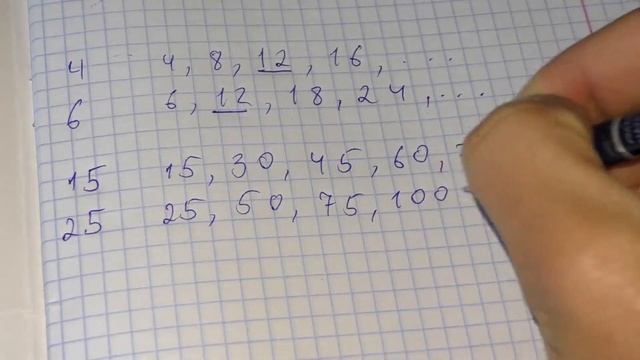 4 4, 8, 12, 16, ...
6 6, 12, 18, 24, ...
15 15, 30, 45, 60,
25 25, 50, 75, 100